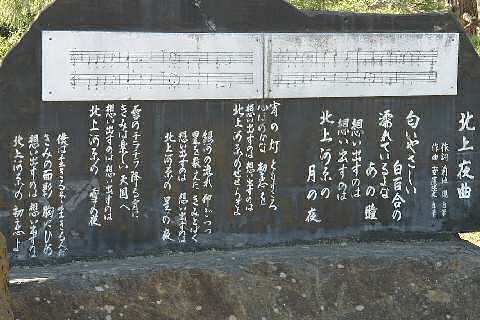 北上夜曲
作詞 菊地 規 自筆
作曲 安藤睦夫 自筆
匂いやさしい 白百合の
濡れているよな あの瞳
想い出すのは
想い出すのは
北上河原の 月の夜
宵の灯 ともすころ
心ほのかな 初恋を
想い出すのは 想い出すのは
北上河原の せせらぎよ
銀河の流れ 仰ぎつつ
星を数えた きみとぼく
想い出すのは 想い出すのは
北上河原の 星の夜
雪のチラチラ 降る宵に
きみは楽しい 天国へ
想い出すのは 想い出すのは
北上河原の 雪の夜
僕は生きるぞ 生きるんだ
きみの面影 胸にひめ
想い出すのは 想い出すのは
北上河原の 初恋よ